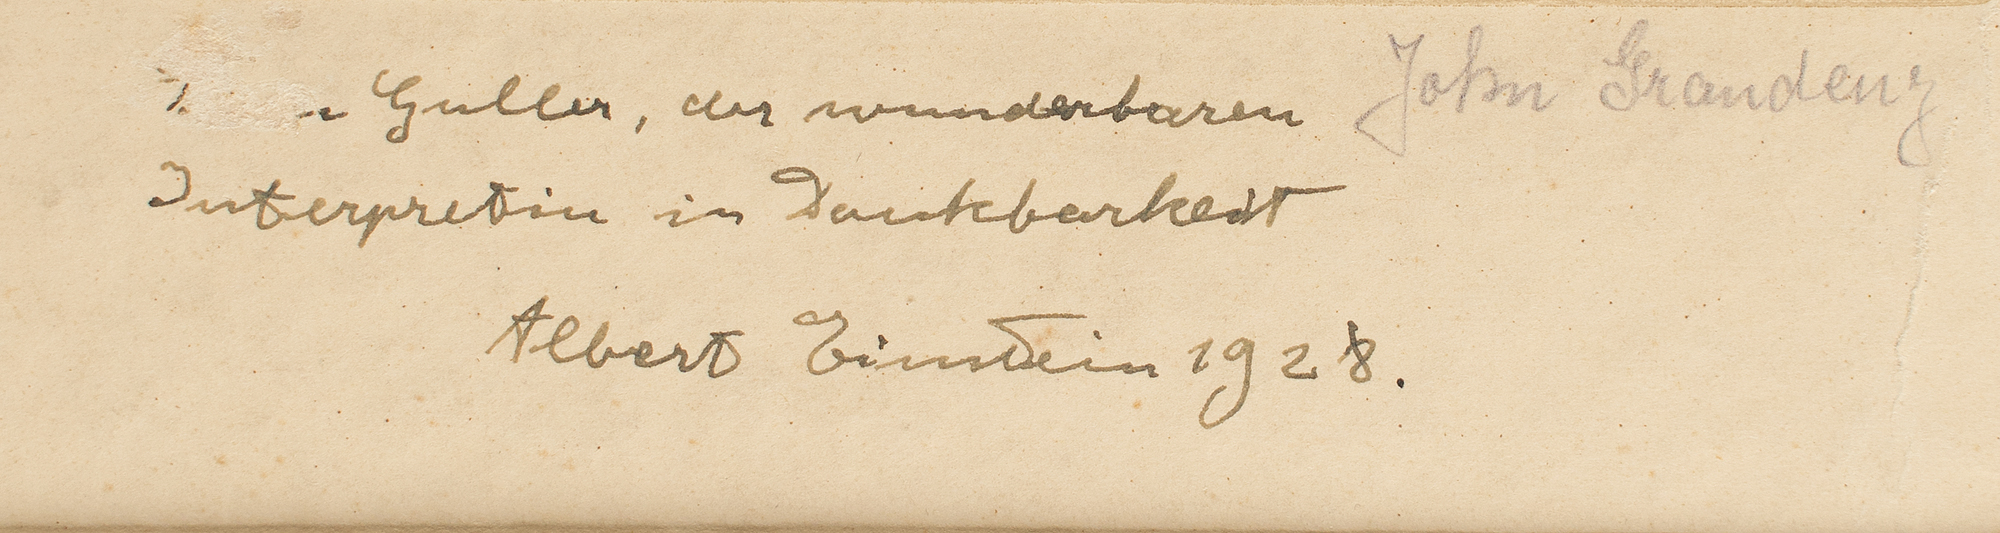 Guller, der wunderbaren
John Graudenz
Interpretin in Dankbarkeit
Albert Einstein 1928.